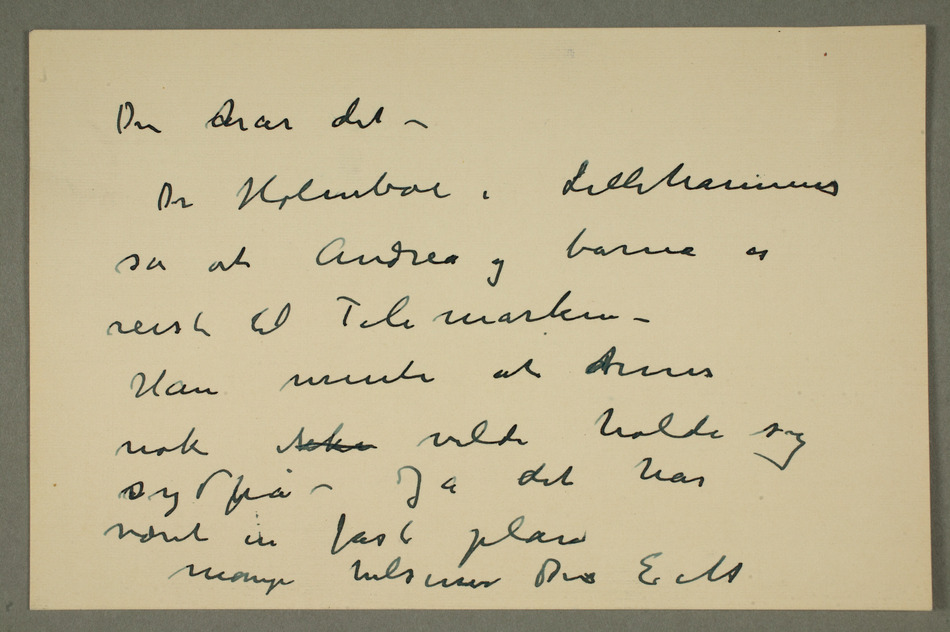 Du har det –
Dr Holmboe i Lillehammer
sa at Andrea og barna er
reist til Telemarken –
Han mente at
nok ikke vilde holde sig
sydpå – Ja det har
været en fast plan
mange hilsener Din E M